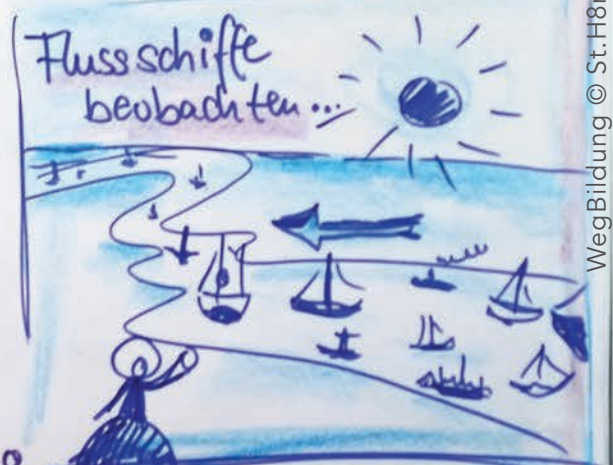 Flussschiffe
beobachten...
WegBildung © St.H8r